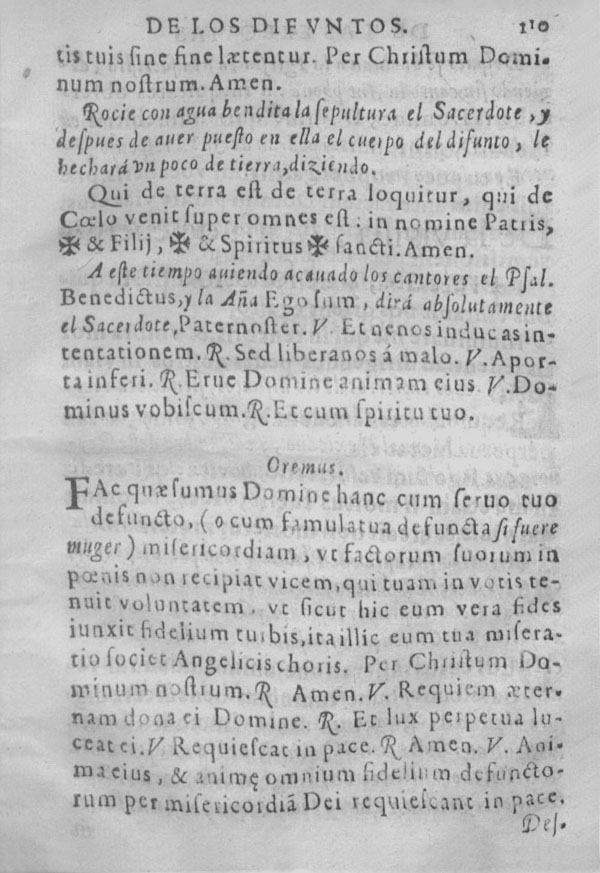 DE LOS DIFVNTOS. 110
tis tuis ſine fine lætentur. Per Chriſtum Domi-
num noſtrum. Amen.
Rocie con agua bendita la ſepultura el Sacerdote, y
deſpues de auer pueſto en ella el cuerpo del difunto, le
hechará vn poco de tierra, diziendo.
Qui de terra eſt de terra loquitur, qui de
Cœlo venit ſuper omnes eſt: in nomine Patris,
✠ & Filij, ✠ & Spiritus ✠ ſancti. Amen.
A eſte tiempo auiendo acauado los cantores el Pſal.
Benedictus, y la Aña Ego ſum, dirá abſolutamente
el Sacerdote, Paternoſter. ℣. Et ne nos inducas in-
tentationem. ℟. Sed libera nos á malo. ℣. A por-
ta inferi. ℟. Erue Domine animam eius. ℣. Do-
minus vobiſcum. ℟. Et cum ſpiritu tuo.
Oremus.
FAc quæſumus Domine hanc cum ſeruo tuo
defuncto, (o cum famula tua defuncta ſi fuere
muger) miſericordiam, vt factorum ſuorum in
pœnis non recipiat vicem, qui tuam in votis te-
nuit voluntatem, vt ſicut hic eum vera fides
iunxit fidelium turbis, ita illic eum tua miſera-
tio ſociet Angelicis choris. Per Chriſtum Do-
minum noſtrum. ℟. Amen. ℣. Requiem æter-
nam dona ei Domine. ℟. Et lux perpetua lu-
ceat ei. ℣ Requieſcat in pace. ℟ Amen. ℣. Ani-
ma eius, & animę omnium fidelium defuncto-
rum per miſericordiã Dei requieſcant in pace.
Deſ-